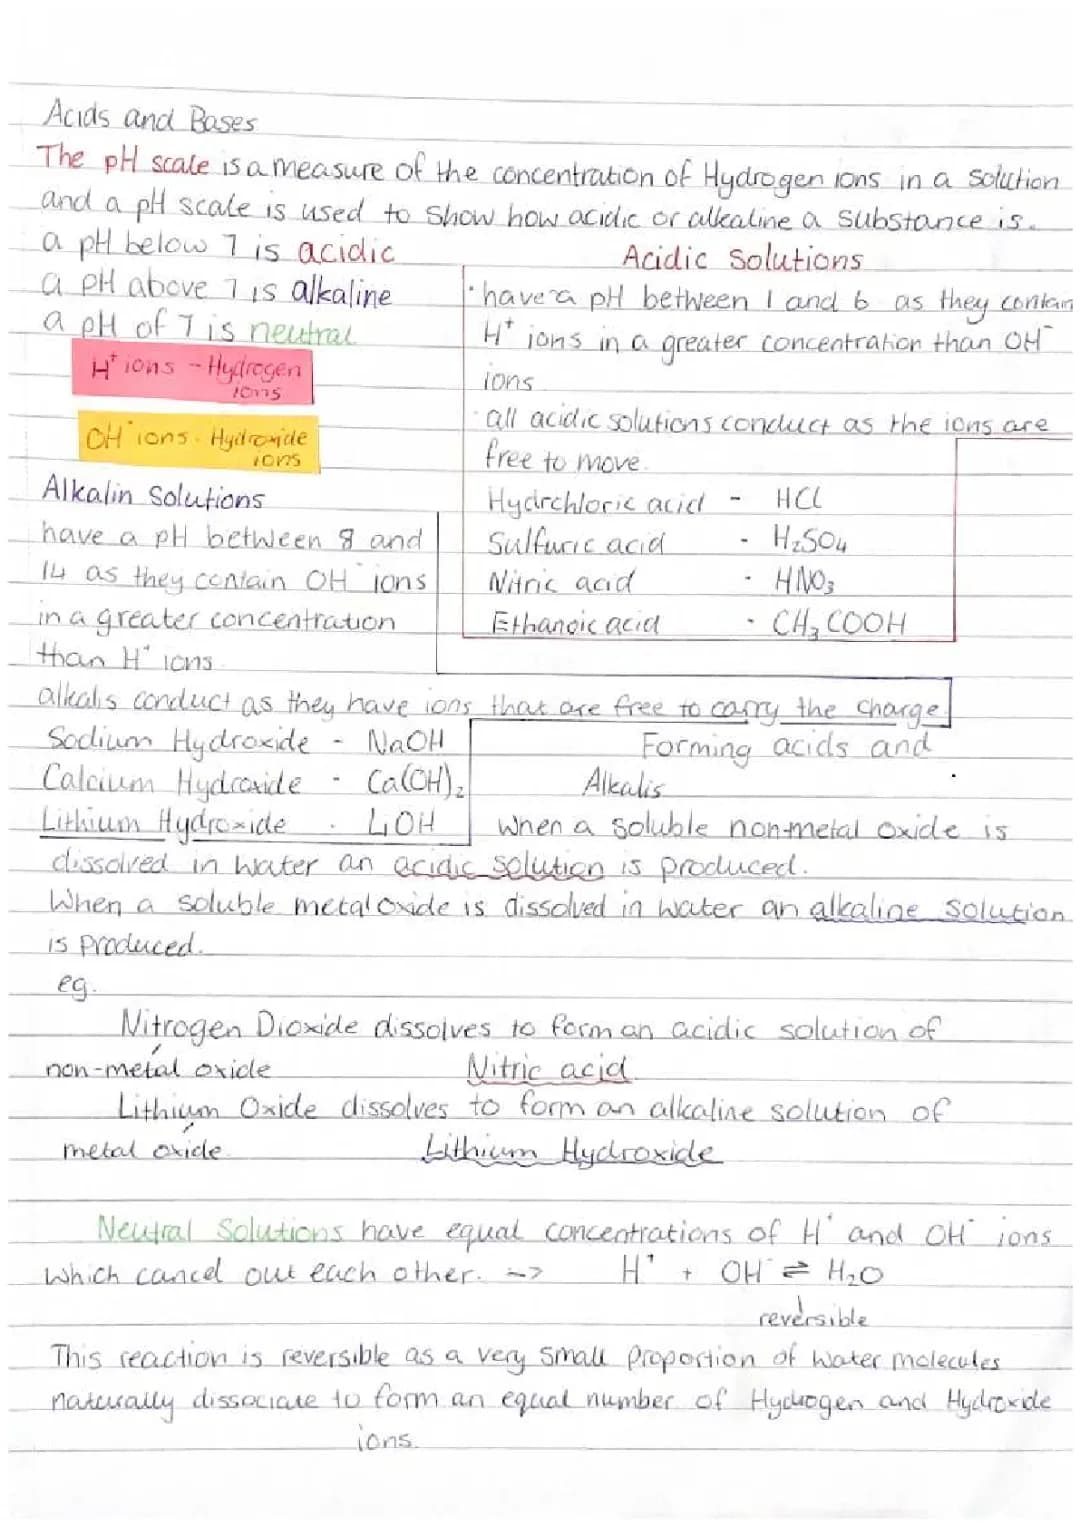 Acids and Bases
The pH scale is a measure of the concentration of Hydrogen ions in a solution
and a pH scale is used to show how acidic or alkaline a substance is.
a pH below 7 is acidic
a pH above 7 is alkaline
a pH of 7 is neutral
H⁺ ions - Hydrogen
ions
OH⁻ ions - Hydroxide
ions
Acidic Solutions
· have a pH between 1 and 6 as they contain
H⁺ ions in a greater concentration than OH⁻
ions
· all acidic solutions conduct as the ions are
free to move.
Hydrchloric acid - HCl
Sulfuric acid - H₂SO₄
Nitric acid - HNO₃
Ethanoic acid - CH₃COOH
Alkalin Solutions
have a pH between 8 and
14 as they contain OH⁻ ions
in a greater concentration
than H⁺ ions.
alkalis conduct as they have ions that are free to carry the charge.
Sodium Hydroxide - NaOH
Calcium Hydroxide - Ca(OH)₂
Lithium Hydroxide - LiOH
Forming acids and
Alkalis
When a soluble non-metal oxide is
dissolved in water an acidic solution is produced.
When a soluble metal oxide is dissolved in water an alkaline solution
is produced.
eg.
Nitrogen Dioxide dissolves to form an acidic solution of
non-metal oxide Nitric acid
Lithium Oxide dissolves to form an alkaline solution of
metal oxide Lithium Hydroxide
Neutral Solutions have equal concentrations of H⁺ and OH⁻ ions
which cancel out each other. -> H⁺ + OH⁻ ⇌ H₂O
reversible
This reaction is reversible as a very small proportion of water molecules
naturally dissociate to form an equal number of Hydrogen and Hydroxide
ions.